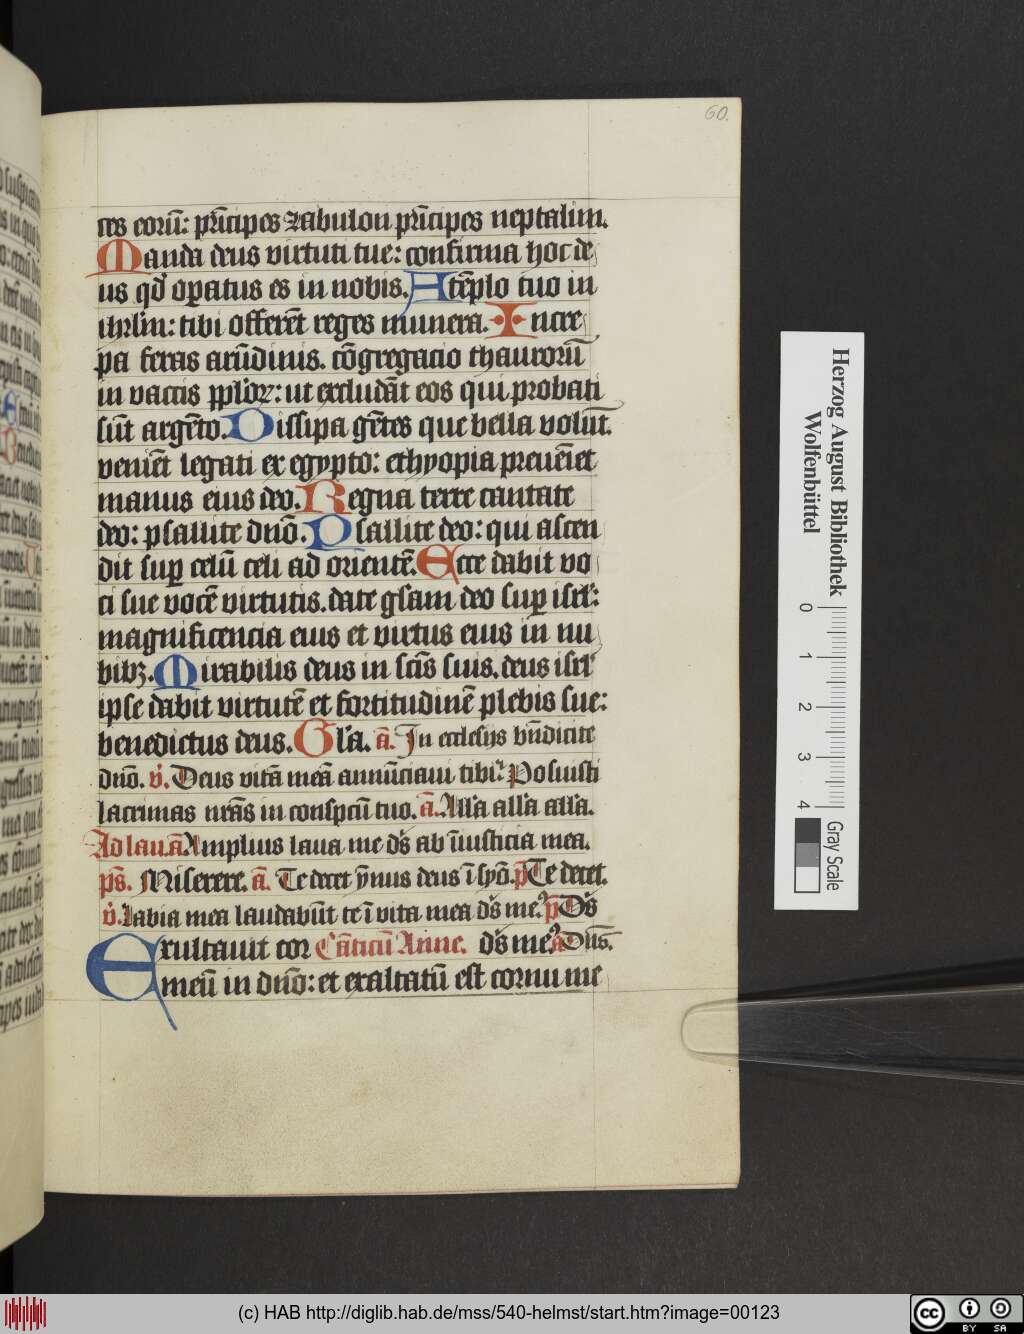 60.
ces eorū: prīcipes zabulon prīcipes neptalim.
Manda deus virtuti tue: confirma hoc de
us qd' oꝑatus es in nobis. A tēplo tuo in
ihrlm: tibi offerēt reges munera. Incre
pa feras arūdinis. cōgregacio thaurorū
in vaccis pploꝝ: ut excludāt eos qui probati
sūt argēto. Dissipa gētes que bella volūt.
veniēt legati ex egypto: ethyopia preueīet
manus eius deo. Regna terre cantate
deo: psallite dnō. Psallite deo: qui ascen
dit suꝑ celū celi ad orientē. Ecce dabit vo
ci sue vocē virtutis. date gl'am deo suꝑ isrl':
magnificencia eius et virtus eius in nu
bibꝫ. Mirabilis deus in scīs suis. deus isrl'
ipse dabit virtutē et fortitudinē plebis sue:
benedictus deus. Gl'a. ā. In ecclesijs bn̄dicite
dnō. v̇. Deus vitā meā annūciaui tibi. Posuisti
lacrimas nr̄as in conspcū tuo. ā. All'a all'a all'a.
Ad lau. ā Amplius laua me ds̄ ab īiusticia mea.
ps̄. Miserere. ā. Te decet ymnus deus ī syō. p̄ Te decet.
v̇. Labia mea laudabūt te ī vita mea ds̄ me⁹ p̄ Ds̄
Exultauit cor Cāticū Anne. ds̄ me⁹ ā Dn̄s.
meū in dnō: et exaltatū est cornu me
Herzog August Bibliothek
Wolfenbüttel
0 1 2 3 4
Gray Scale
(c) HAB http://diglib.hab.de/mss/540-helmst/start.htm?image=00123
cc BY SA